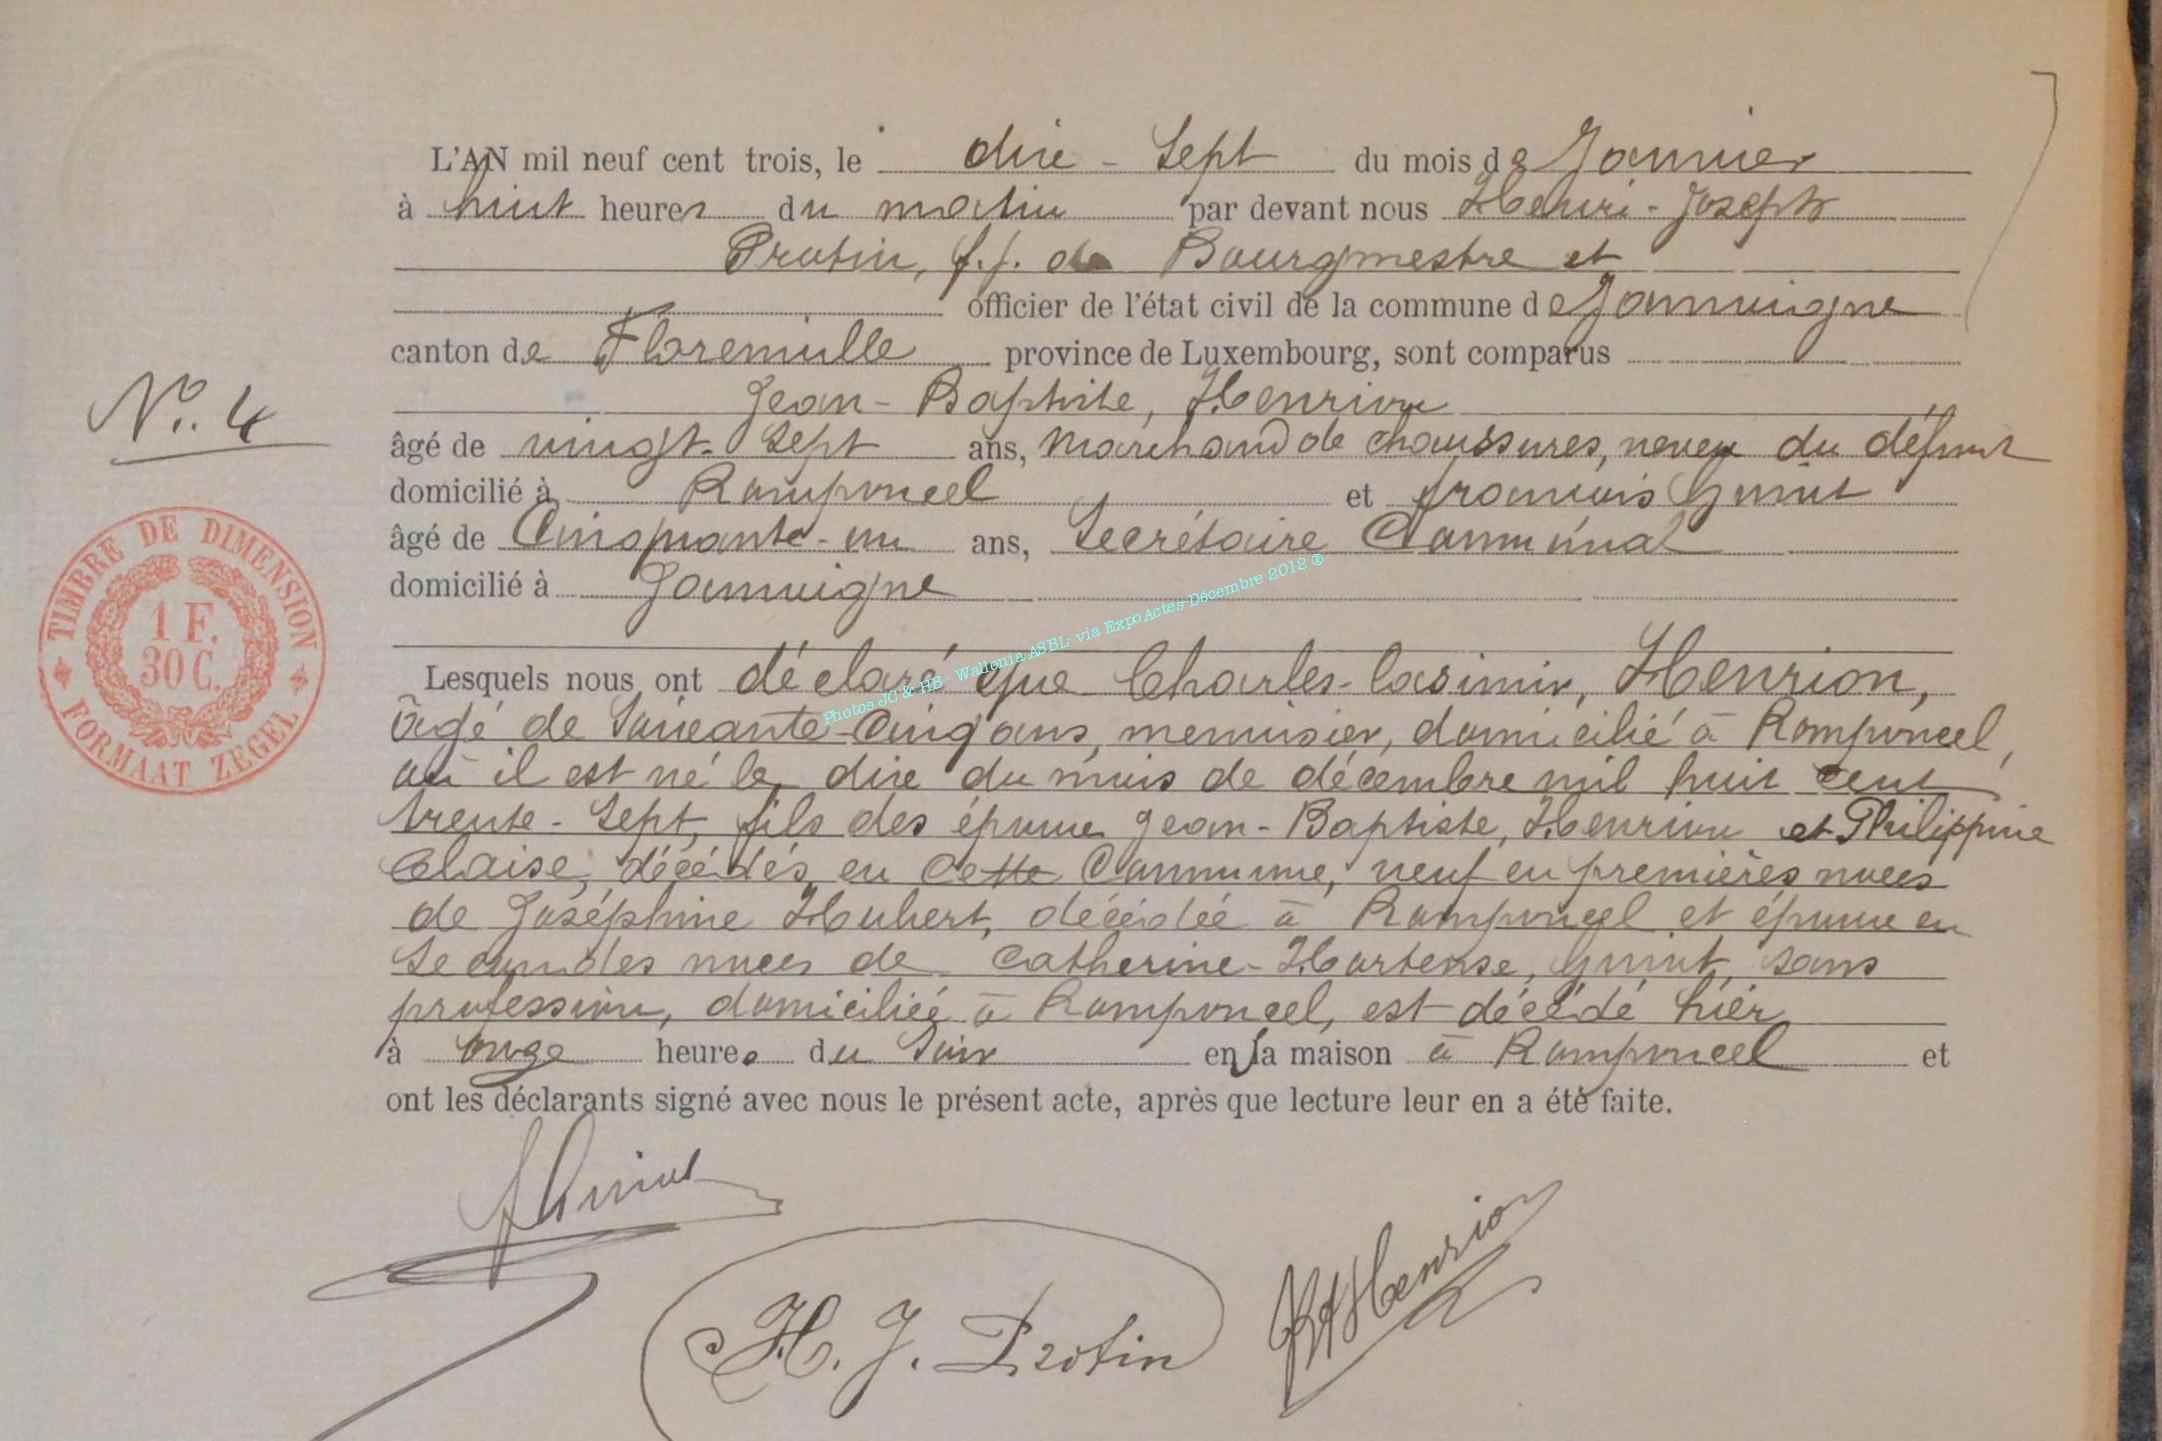 L'AN mil neuf cent trois, le dix-sept du mois de Janvier
à huit heures du matin par devant nous Henri-Joseph
Protin, f.f. de Bourgmestre et
officier de l'état civil de la commune de Jamoigne
canton de Florenville province de Luxembourg, sont comparus
Jean-Baptiste, Henrion
N°. 4
âgé de vingt-sept ans, marchand de chaussures, neveu du défunt
domicilié à Romponcel et François Guiot
âgé de Cinquante-un ans, Secrétaire Communal
domicilié à Jamoigne
TIMBRE DE DIMENSION
1 F.
30 C.
FORMAAT ZEGEL
Photos JC & HS - Wallonia ASBL; via ExpoActes Décembre 2012 ®
Lesquels nous ont déclaré que Charles-Casimir, Henrion,
âgé de Soixante-Cinq ans, menuisier, domicilié à Romponcel,
où il est né le dix du mois de décembre mil huit cent
trente-sept, fils des époux Jean-Baptiste, Henrion et Philippine
Claise, décédés en cette Commune, veuf en premières noces
de Joséphine Hubert, décédée à Romponcel et époux en
secondes noces de Catherine-Hortense, Guiot, sans
profession, domiciliée à Romponcel, est décédé hier
à onze heures du soir en la maison à Romponcel et
ont les déclarants signé avec nous le présent acte, après que lecture leur en a été faite.
H. J. Protin
Henrion